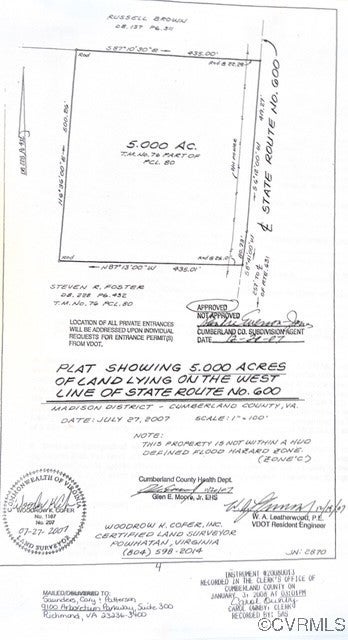 RUSSELL BROWN
DB. 157 PG. 311
S 87°10'30"E 435.00'
Rod
Rod
500.86'
N 6°36'00"E
5.000 AC.
T.M. NO. 76 PART OF
PCL. 80
417.27'
S 6°18'00"W
℄ STATE ROUTE NO. 600
N87°13'00"W 435.01'
STEVEN R. FOSTER
DB. 238 PG. 452
T.M. NO. 76 PCL. 80
APPROVED
NOT APPROVED
CUMBERLAND CO. SUBDIVISION AGENT
DATE 12-21-07
LOCATION OF ALL PRIVATE ENTRANCES
WILL BE ADDRESSED UPON INDIVIDUAL
REQUESTS FOR ENTRANCE PERMIT(S)
FROM VDOT.
PLAT SHOWING 5.000 ACRES
OF LAND LYING ON THE WEST
LINE OF STATE ROUTE NO. 600
MADISON DISTRICT - CUMBERLAND COUNTY, VA.
DATE: JULY 27, 2007 SCALE: 1" = 100'
NOTE:
THIS PROPERTY IS NOT WITHIN A HUD
DEFINED FLOOD HAZARD ZONE.
(ZONE "C")
COMMONWEALTH OF VIRGINIA
WOODROW K. COFER
No. 1187
07-27-2007
LAND SURVEYOR
Cumberland County Health Dept.
Glen E. Moore, Jr. EHS
W. A. Leatherwood, P.E.
VDOT Resident Engineer
WOODROW K. COFER, INC.
CERTIFIED LAND SURVEYOR
POWHATAN, VIRGINIA
(804) 598-2014
JN: C870
4
MAILED/DELIVERED TO:
Saunders, Cary & Patterson
9100 Arboretum Parkway, Suite 300
Richmond, VA 23236-3400
INSTRUMENT #200800113
RECORDED IN THE CLERK'S OFFICE OF
CUMBERLAND COUNTY ON
JANUARY 31, 2008 AT 03:01PM
CAROL OWNBY, CLERK
RECORDED BY: SAS
© CVRMLS